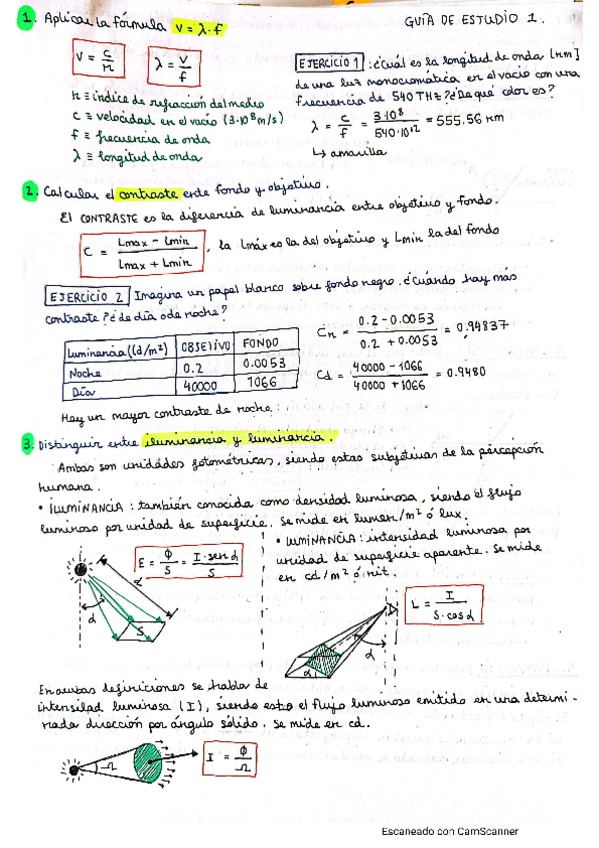 GUÍA DE ESTUDIO 1.
1. Aplicar la fórmula v = λ·f
v = c/n
λ = v/f
n ≡ índice de refracción del medio
c ≡ velocidad en el vacío (3·10⁸ m/s)
f ≡ frecuencia de onda
λ ≡ longitud de onda
EJERCICIO 1: ¿cuál es la longitud de onda [nm]
de una luz monocromática en el vacío con una
frecuencia de 540 THz? ¿De qué color es?
λ = c/f = 3·10⁸/540·10¹² = 555.56 nm
↳ amarilla
2. Calcular el contraste entre fondo y objetivo.
El CONTRASTE es la diferencia de luminancia entre objetivo y fondo.
C = Lmax - Lmin / Lmax + Lmin , la Lmáx es la del objetivo y Lmin la del fondo
EJERCICIO 2 Imagina un papel blanco sobre fondo negro. ¿Cuándo hay mas
contraste? ¿de día o de noche?
Luminancia (cd/m²) OBJETIVO FONDO
Noche 0.2 0.0053
Día 40000 1066
Cn = 0.2 - 0.0053 / 0.2 + 0.0053 = 0.94837
Cd = 40000 - 1066 / 40000 + 1066 = 0.9480
Hay un mayor contraste de noche
3. Distinguir entre iluminancia y luminancia.
Ambas son unidades fotométricas, siendo estas subjetivas de la percepción
humana.
• ILUMINANCIA: también conocida como densidad luminosa, siendo el flujo
luminoso por unidad de superficie. Se mide en lumen/m² ó lux.
E = ϕ/S = I·sen α/S
α
α
S
• LUMINANCIA: intensidad luminosa por
unidad de superficie aparente. Se mide
en cd/m² ó nit.
L = I/S·cos α
α
α
En ambas definiciones se habla de
intensidad luminosa (I), siendo esta el flujo luminoso emitido en una determi-
nada dirección por ángulo sólido. Se mide en cd.
Ω
I = ϕ/Ω
Escaneado con CamScanner